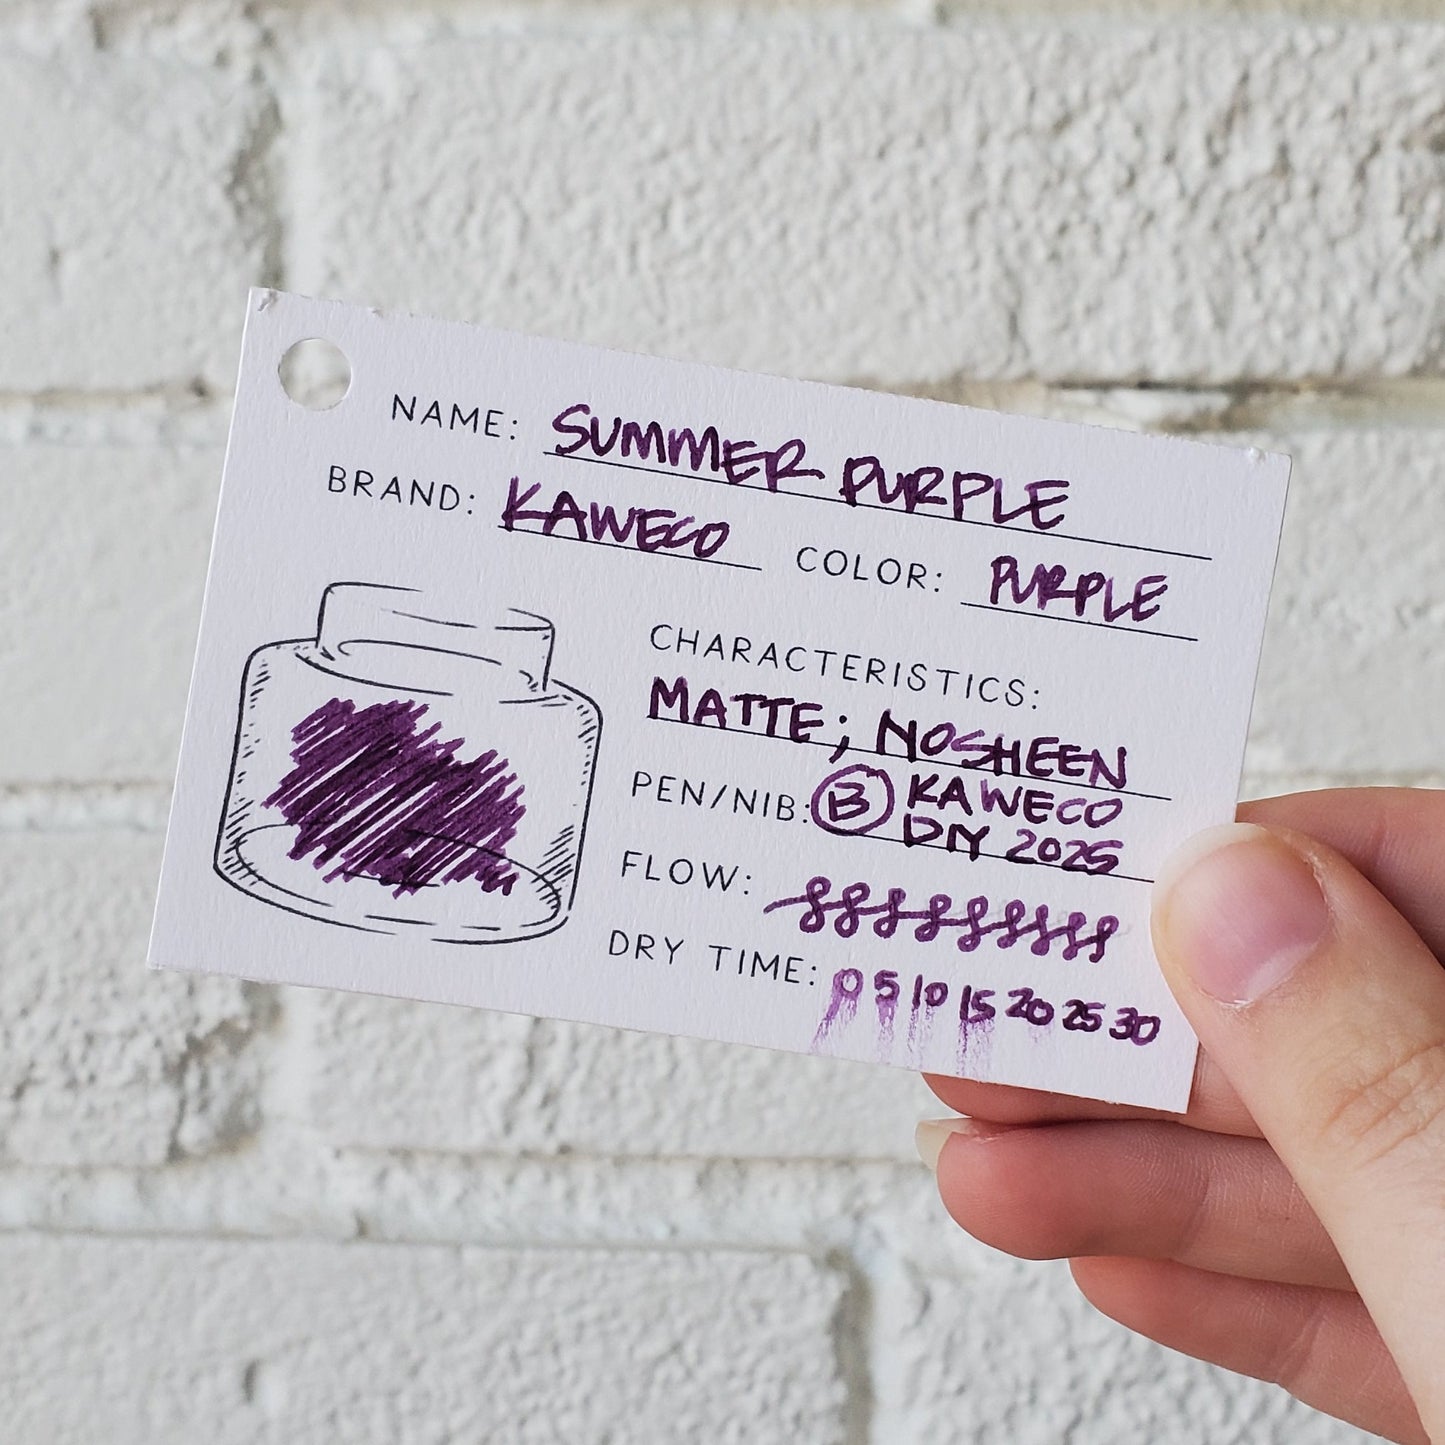 NAME: SUMMER PURPLE
BRAND: KAWECO COLOR: PURPLE
CHARACTERISTICS:
MATTE; NOSHEEN
PEN/NIB: B KAWECO
DIY 2025
FLOW:
DRY TIME: 0 5 10 15 20 25 30